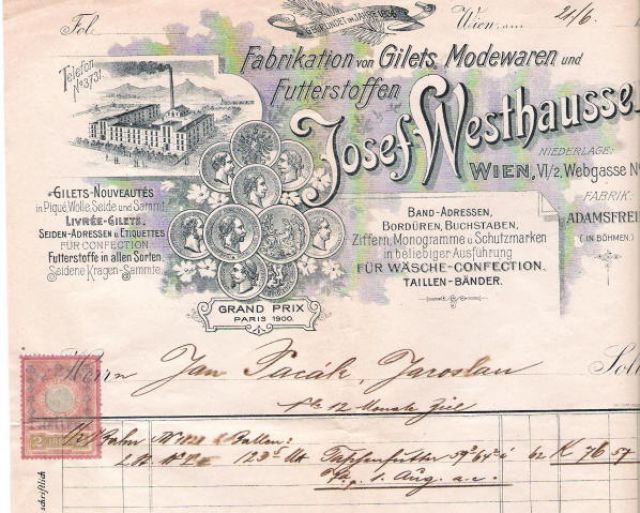 Fol.
GEGRÜNDET IM JAHRE
Wien, am 21/6.
Telefon
No. 3731.
Fabrikation von Gilets, Modewaren und
Futterstoffen
Josef Westhausse
NIEDERLAGE:
WIEN, VI/2, Webgasse N
FABRIK:
ADAMSFREI
(IN BÖHMEN.)
GILETS-NOUVEAUTÉS
in Piqué, Wolle, Seide und Sammt.
LIVRÉE-GILETS.
SEIDEN-ADRESSEN u. ETIQUETTES
FÜR CONFECTION.
Futterstoffe in allen Sorten.
Seidene Kragen-Sammte.
BAND-ADRESSEN,
BORDÜREN, BUCHSTABEN,
Ziffern, Monogramme u. Schutzmarken
in beliebiger Ausführung
FÜR WÄSCHE-CONFECTION.
TAILLEN-BÄNDER.
GRAND PRIX
PARIS 1900.
Herrn Jan Pacák, Jaroslau Soll
12 Monate Ziel
Bahn Ballen:
62 K 76 57
1. Aug. a.c.
schriftlich